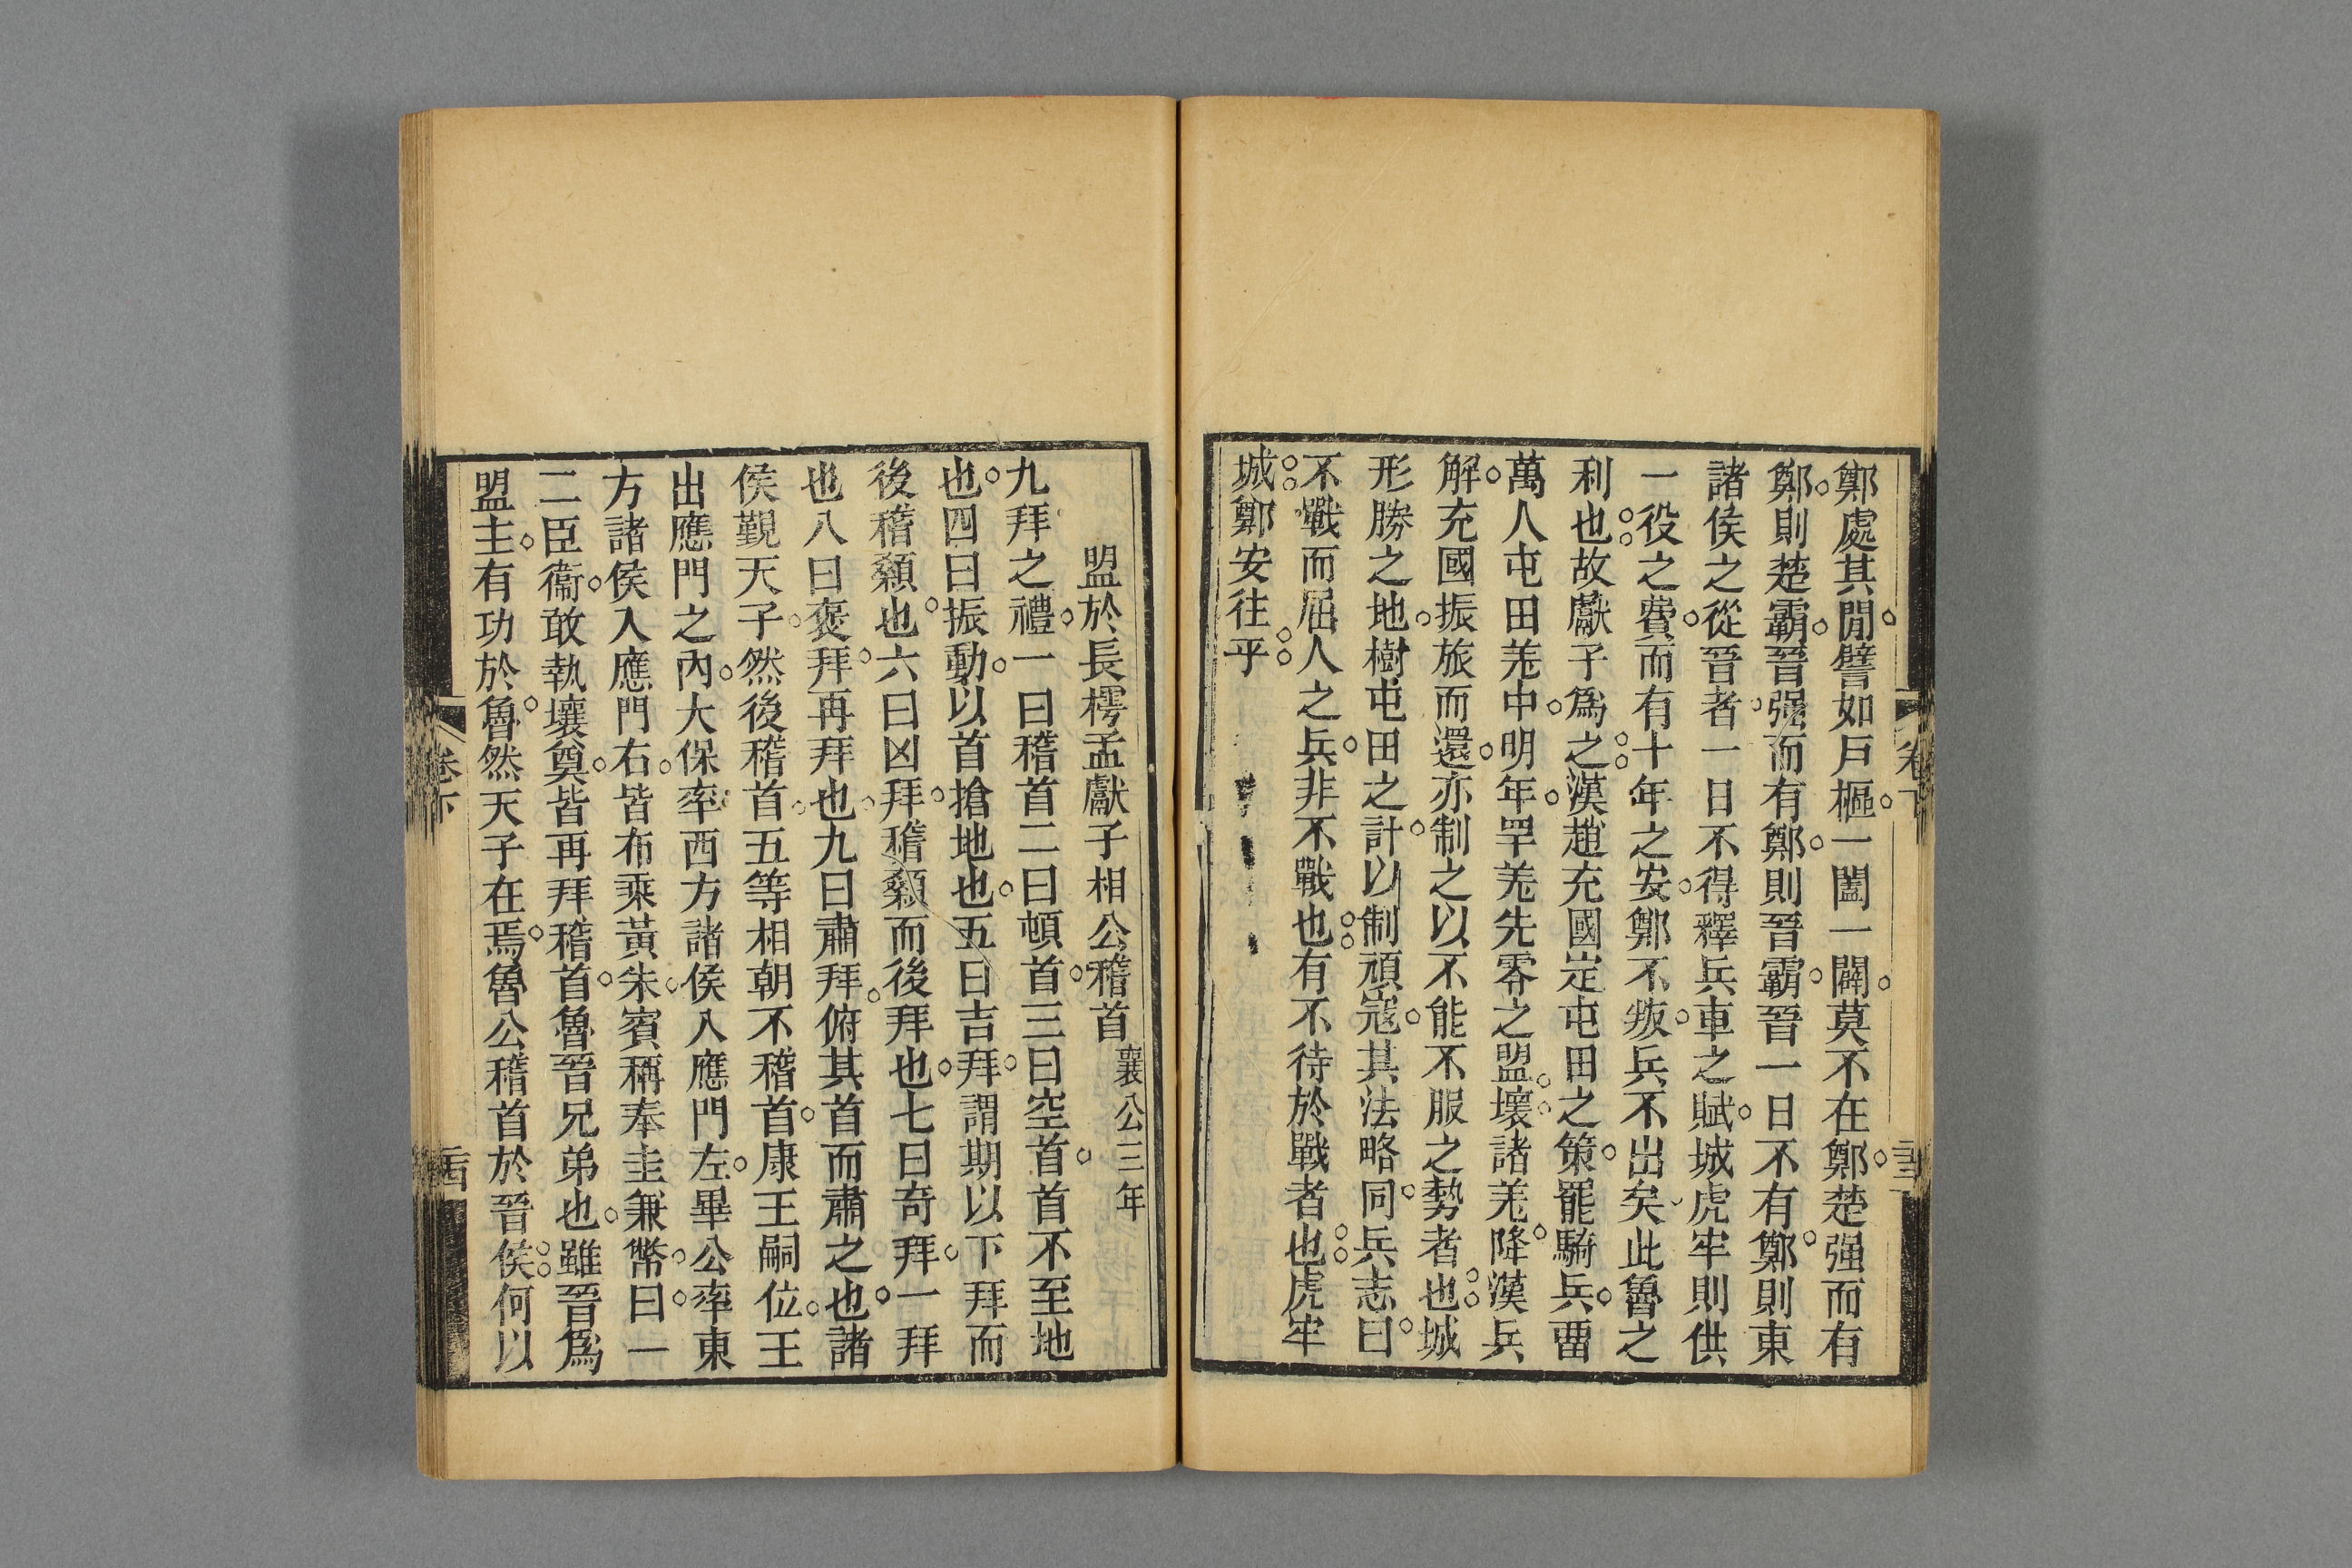 鄭處其閒譬如戶樞一闔一闢莫不在鄭楚强而有
鄭則楚霸晉强而有鄭則晉霸晉一日不有鄭則東
諸侯之從晉者一日不得釋兵車之賦城虎牢則供
一役之費而有十年之安鄭不叛兵不出矣此魯之
利也故獻子爲之漢趙充國定屯田之策罷騎兵畱
萬人屯田羌中明年罕羌先零之盟壞諸羌降漢兵
解充國振旅而還亦制之以不能不服之勢者也城
形勝之地樹屯田之計以制頑寇其法略同兵志曰
不戰而屈人之兵非不戰也有不待於戰者也虎牢
城鄭安往乎
卷下
盟於長樗孟獻子相公稽首襄公三年
九拜之禮一曰稽首二曰頓首三曰空首首不至地
也四曰振動以首搶地也五曰吉拜謂期以下拜而
後稽顙也六曰凶拜稽顙而後拜也七曰奇拜一拜
也八曰褒拜再拜也九曰肅拜俯其首而肅之也諸
侯覲天子然後稽首五等相朝不稽首康王嗣位王
出應門之內大保率西方諸侯入應門左畢公率東
方諸侯入應門右皆布乘黃朱賓稱奉圭兼幣曰一
二臣衞敢執壤奠皆再拜稽首魯晉兄弟也雖晉爲
盟主有功於魯然天子在焉魯公稽首於晉侯何以
卷下